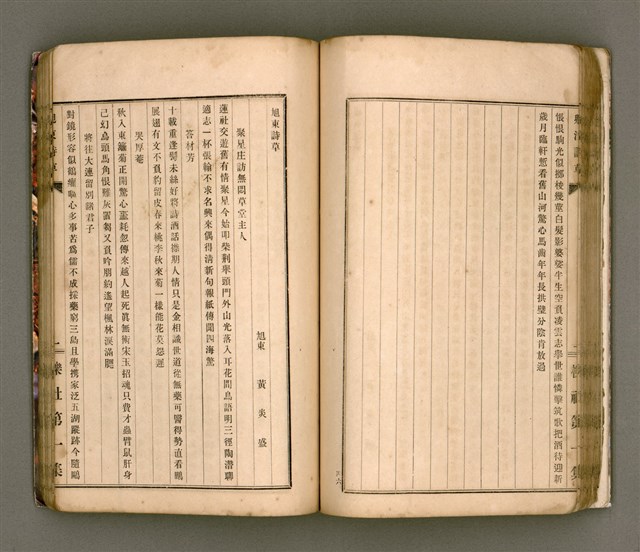 悵恨駒光似擲梭幾莖白髮影婆娑半生空負凌雲志舉世誰憐擊筑歌把酒待迎新
歲月臨軒愁看舊山河驚心馬齒年年長拱璧分陰肯放過
旭東詩草
旭東 黃炎盛
聚星庄訪無悶草堂主人
蓮社交遊舊有情聚星今始叩柴荆舉頭門外山光落入耳花間鳥語明三徑陶潛聊
適志一杯張翰不求名興來偶得清新句報紙傳聞四海驚
答材芳
十載重逢鬢未絲好將詩酒話襟期人情只是金相識世道從無藥可醫得勢直看鵬
展翅有文不負豹留皮春來桃李秋來菊一樣能花莫怨遲
哭厚菴
秋入東籬菊正開驚心噩耗忽傳來越人起死眞無術宋玉招魂只費才蟲臂鼠肝身
已幻烏頭馬角恨難灰當匊又負吟朋約遙望楓林淚滿腮
將往大連留別諸君子
對鏡形容似鶴癯聊心多事苦爲儒不成採藥窮三島且學携家泛五湖蹤跡今隨鷗
櫟社第一集